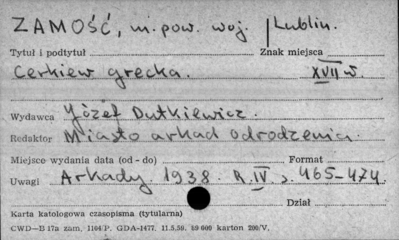 ZAMOŚĆ, m. pow. woj. Lublin.
Tytuł i podtytuł Znak miejsca
Cerkiew grecka. XVII w.
Wydawca Józef Dutkiewicz.
Redaktor Miasto arkad odrodzenia.
Miejsce wydania data (od - do) Format
Uwagi Arkady. 1938. R. IV s. 465-474
Dział
Karta katologowa czasopisma (tytularna)
CWD—B 17a zam. 1104/P. GDA-1477. 11.5.56. 49 600 karton 200/V.